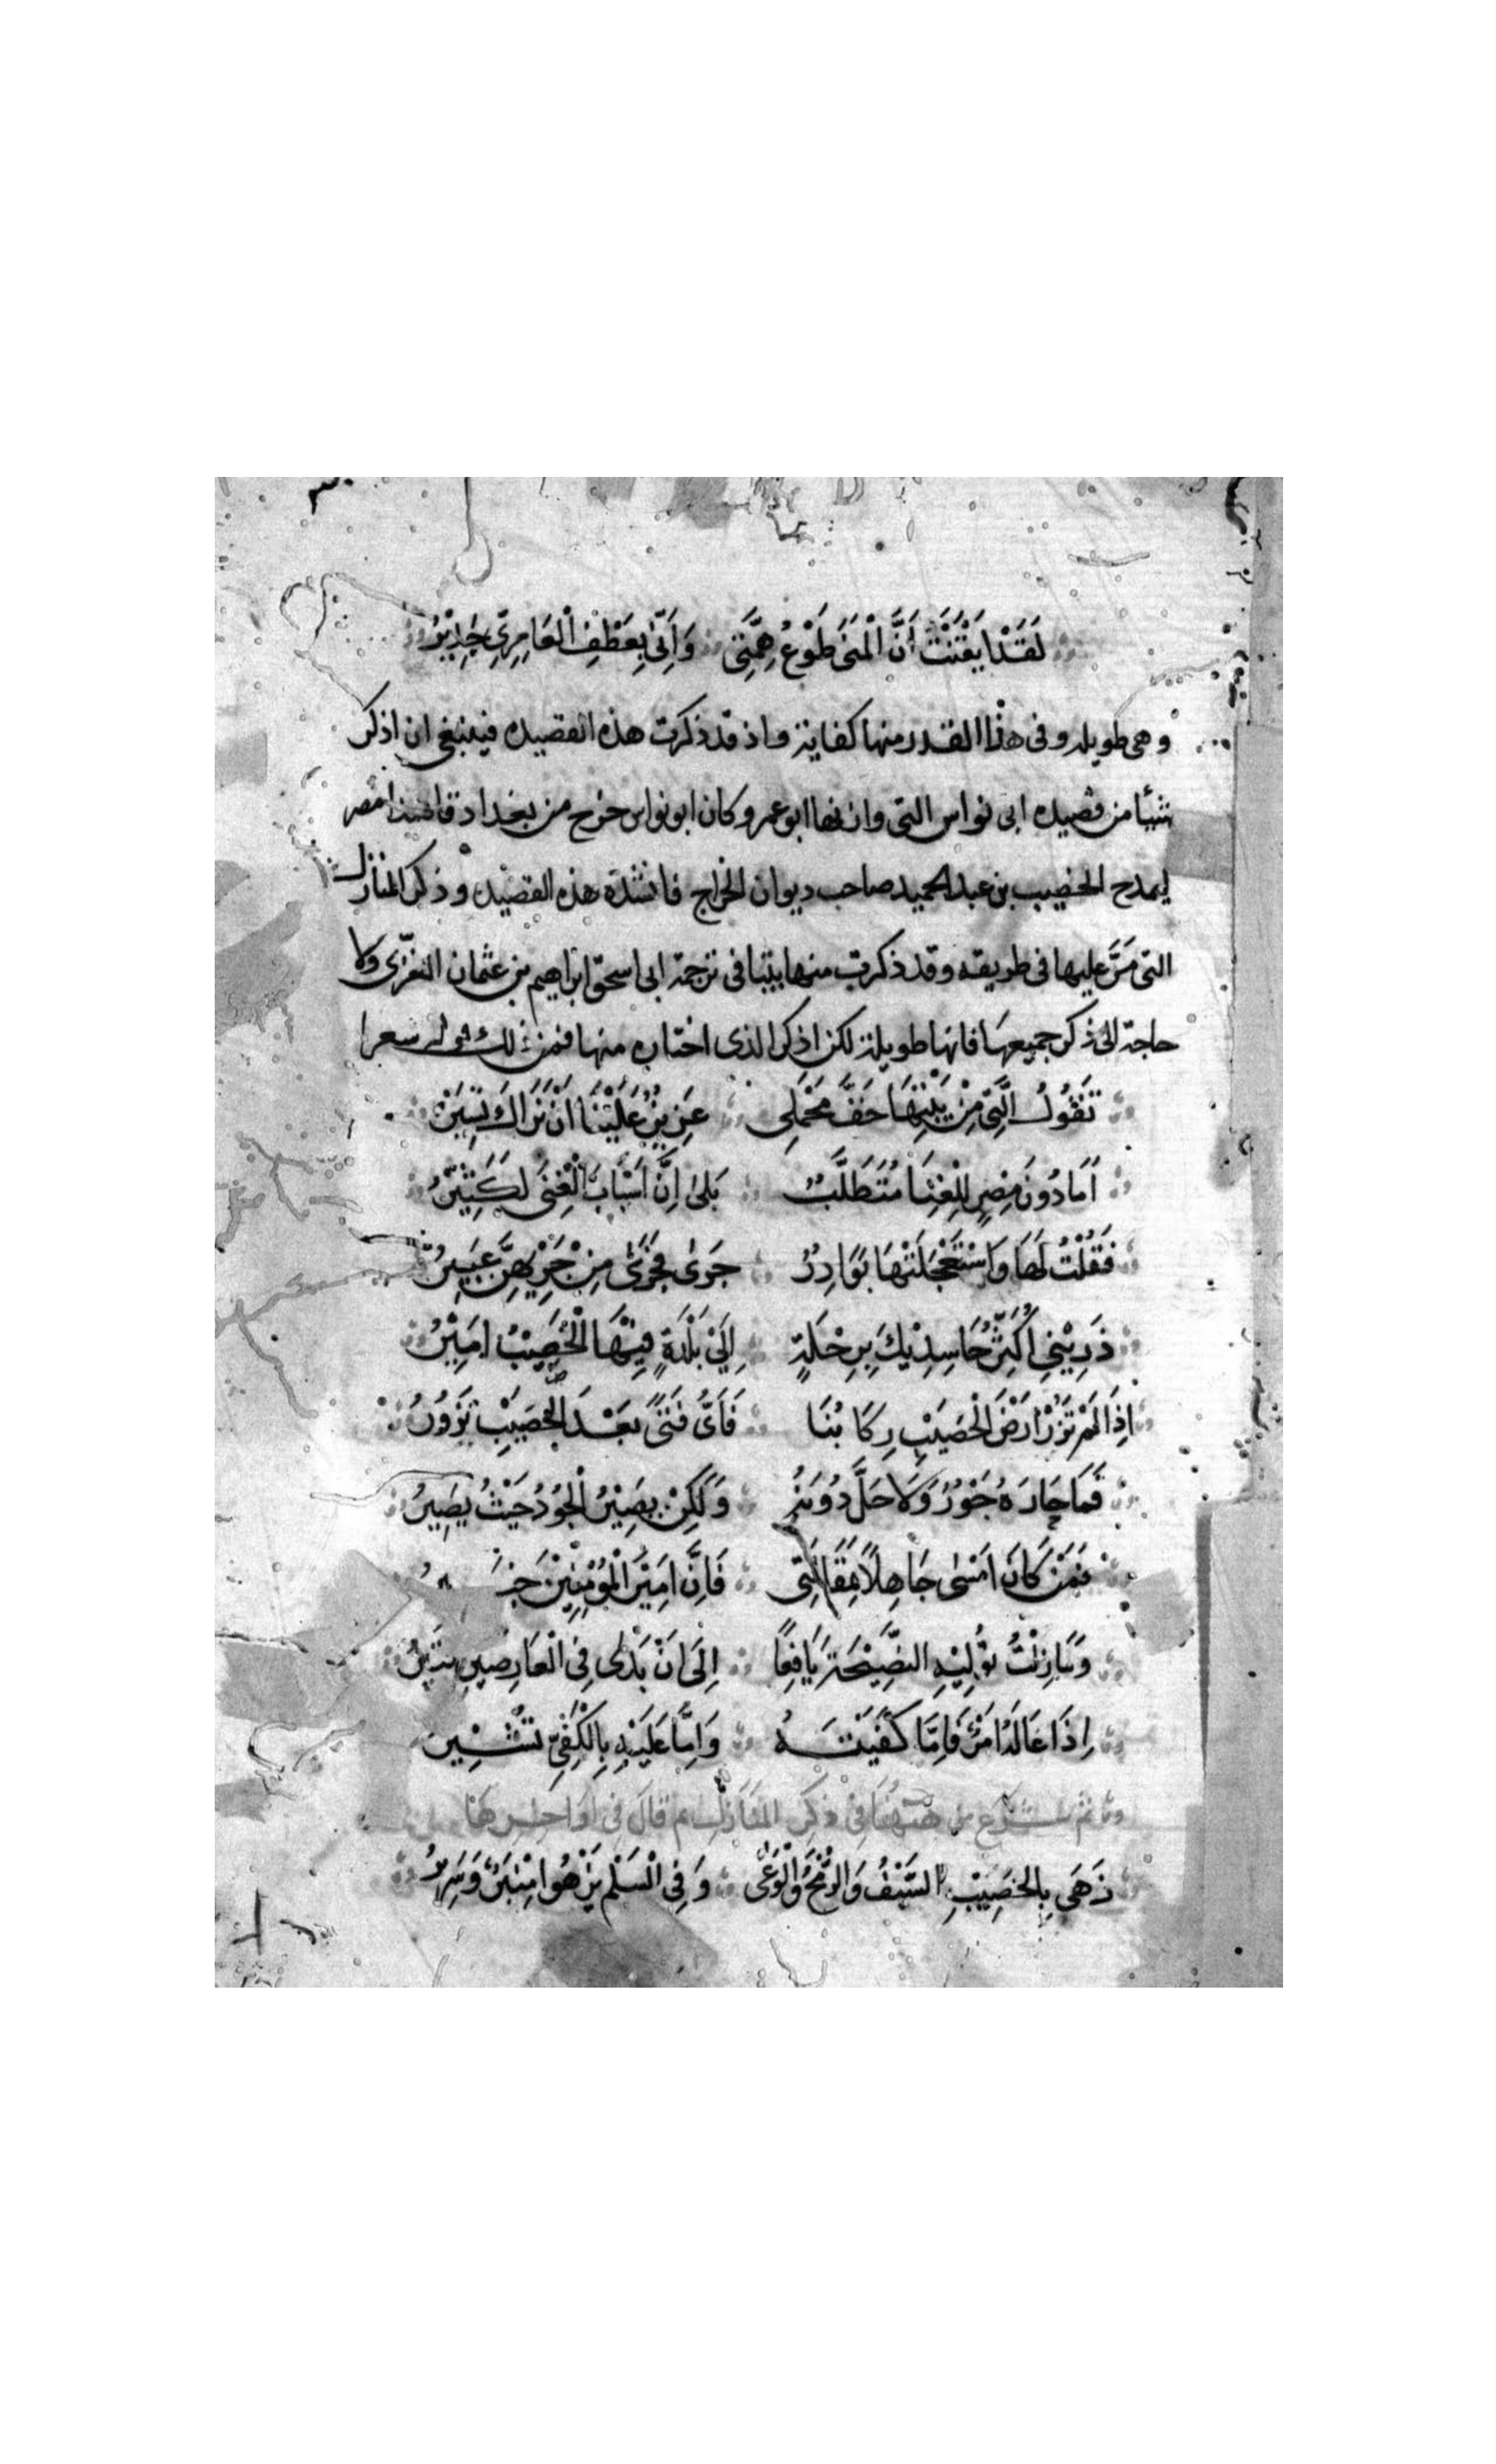 لَقَدْ اَيْقَنْتُ أَنَّ الْمُنَى طَوْعُ هِمَّتِى وَاَنِّى بِعَطْفِ الْعَامِرِىِّ جَدِيْرُ
وهى طويله وفى هذا القدر منها كفاية واذ قد ذكرت هذه القصيده فينبغى ان اذكر
شيأ من قصيده ابى نواس التى وازنها ابو عمر وكان ابو نواس خرج من بغداد قاصدا مصر
ليمدح الخصيب بن عبد الحميد صاحب ديوان الخراج فانشده هذه القصيده وذكر المنازل
التى مَرَّ عليها فى طريقه وقد ذكرت منها بيتا فى ترجمة ابى اسحق ابراهيم بن عثمان الغزّى ولا
حاجة الى ذكر جميعها فانها طويلة لكن اذكر الذى اختاره منها فمن ذلك
تَقُولُ الَّتِى مِنْ بَيْتِهَا خَفَّ مَحْمَلِى عَزِيزٌ عَلَيْنَا اَنْ نَرَاكَ تَسِيْرُ
اَمَا دُونَ مِصْرٍ لِلْغِنَا مُتَطَلَّبٌ بَلىٰ اِنَّ اَسْبَابَ الْغِنَى لَكَثِيْرُ
فَقُلْتُ لَهَا وَاسْتَعْجَلَتْهَا بَوَادِرُ جَرَىٰ فَجَرَىٰ مِنْ جَرْيِهِنَّ عَبِيرُ
ذَرِيْنِى اُكَثِّرُ حَاسِدِيْكَ بِرِحْلَةٍ اِلَىٰ بَلْدَةٍ فِيْهَا الْخَصِيْبُ اَمِيْرُ
اِذَا لَمْ تَزُرْ اَرْضَ الْخَصِيْبِ رِكَابُنَا فَاَىُّ فَتَىً بَعْدَ الْخَصِيْبِ تَزُورُ
فَمَا جَازَهُ جُوْدٌ وَلَا حَلَّ دُوْنَهُ وَلٰكِنْ يَصِيْرُ الْجُوْدُ حَيْثُ يَصِيرُ
فَمَنْ كَانَ اَمْسٰى جَاهِلاً بِمَقَالَتِى فَاِنَّ اَمِيْرَ الْمُؤْمِنِيْنَ
وَمَا زِلْتُ تُوْلِيْهِ النَّصِيْحَةَ يَافِعًا اِلَى اَنْ بَدٰى فِى الْعَارِضِينِ
اِذَا غَالَهُ اَمْرٌ فَاِمَّا كَفَيْتَهُ وَاِمَّا عَلَيْهِ بِالْكَفِىِّ تُشِيْر
ثم شرع من هَهُنَا فِى ذكر المنازل ثم قال فى اواخرها
زَهَى بِالْخَصِيْبِ السَّيْفُ وَالرُّمْحُ وَالْوَغَى وَفِى السِّلْمِ يَزْهُوا مِنْبَرٌ وَسَرِيْرُ